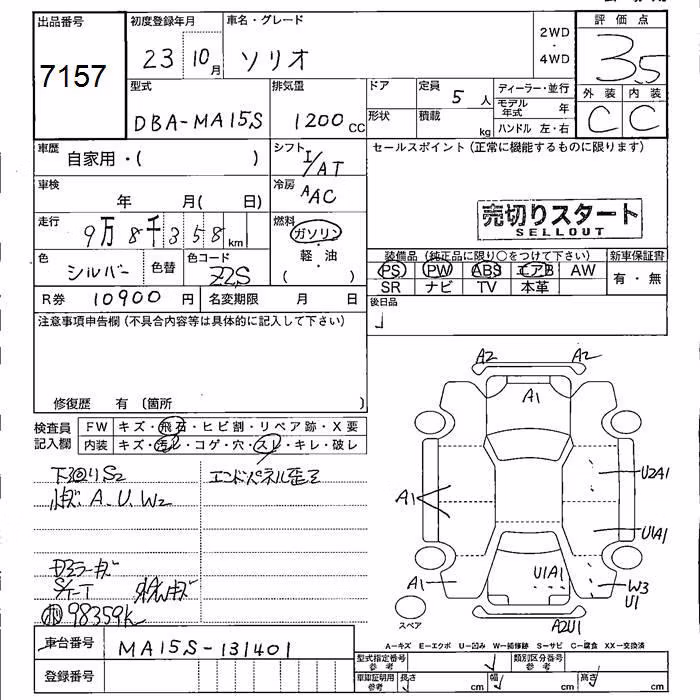 出品番号
7157
初度登録年月
23 10月
車名・グレード
ソリオ
2WD
・
4WD
評価点
3.5
外装 内装
C C
型式
DBA-MA15S
排気量
1200cc
ドア
形状
定員
5人
積載
kg
ディーラー・並行
モデル年式 年
ハンドル 左・右
車歴
自家用・( )
シフト
I/AT
セールスポイント(正常に機能するものに限ります)
車検
年 月( 日)
冷房
AAC
走行
9万8千358km
燃料
ガソリン
・
軽・油
( )
売切りスタート
SELLOUT
色
シルバー
色替
色コード
Z2S
装備品(純正品に限り○をつけて下さい)
PS PW ABS エアB AW
SR ナビ TV 本革
新車保証書
有・無
R券 10900円
名変期限 月 日
後日品
注意事項申告欄(不具合内容等は具体的に記入して下さい)
修復歴 有(箇所 )
検査員
記入欄
FW キズ・飛石・ヒビ割・リペア跡・X要
内装 キズ・汚レ・コゲ・穴・スレ・キレ・破レ
下回りS2
A.U.W2
エンドパネル歪ミ
S/T-T
98359K
A2 A2
A1
A1
U2A1
U1A1
A1
U1A1
W3
U1
A2U1
スペア
A=キズ E=エクボ U=凹み W=補修跡 S=サビ C=腐食 XX=交換済
車台番号
MA15S-131401
登録番号
型式指定番号
参考
類別区分番号
参考
車庫証明用
参考
長さ cm
幅 cm
高さ cm